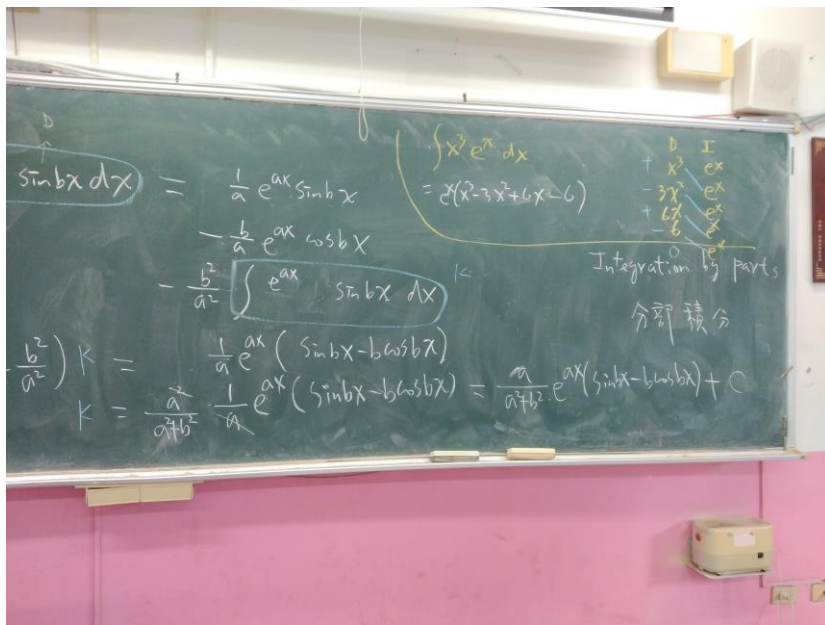 D
↑
sin bx dx = 1/a e^{ax} sin bx
- b/a e^{ax} cos bx
- b²/a² ∫ e^{ax} sin bx dx K
b²/a² ) K = 1/a e^{ax} ( sin bx - b cos bx )
K = a²/(a²+b²) 1/a e^{ax} ( sin bx - b cos bx ) = a/(a²+b²) e^{ax} ( sin bx - b cos bx ) + C
∫ x³ e^x dx
= e^x ( x³ - 3x² + 6x - 6 )
D I
+ x³ e^x
- 3x² e^x
+ 6x e^x
- 6 e^x
0 e^x
Integration by parts
分部積分